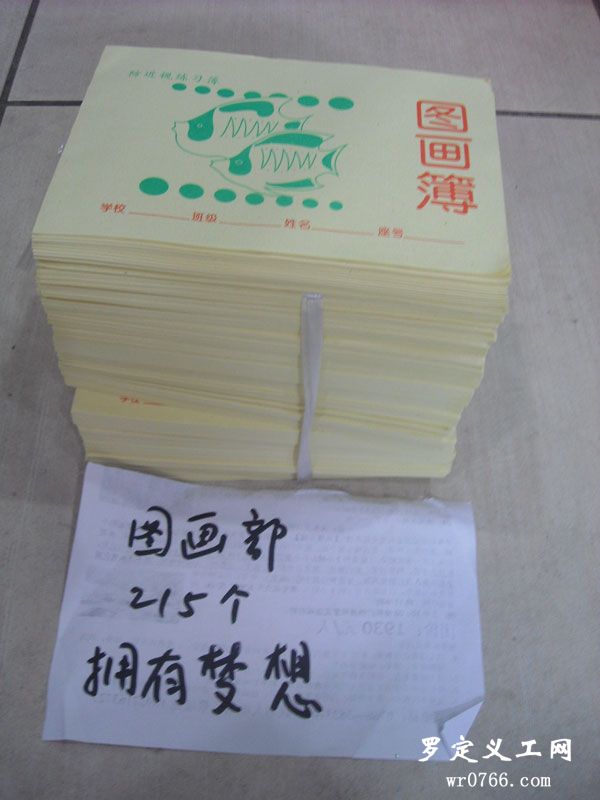 防近视练习簿
图画簿
学校 班级 姓名 座号
图画部
215个
拥有梦想
1930元/人
罗定义工网
wr0766.com